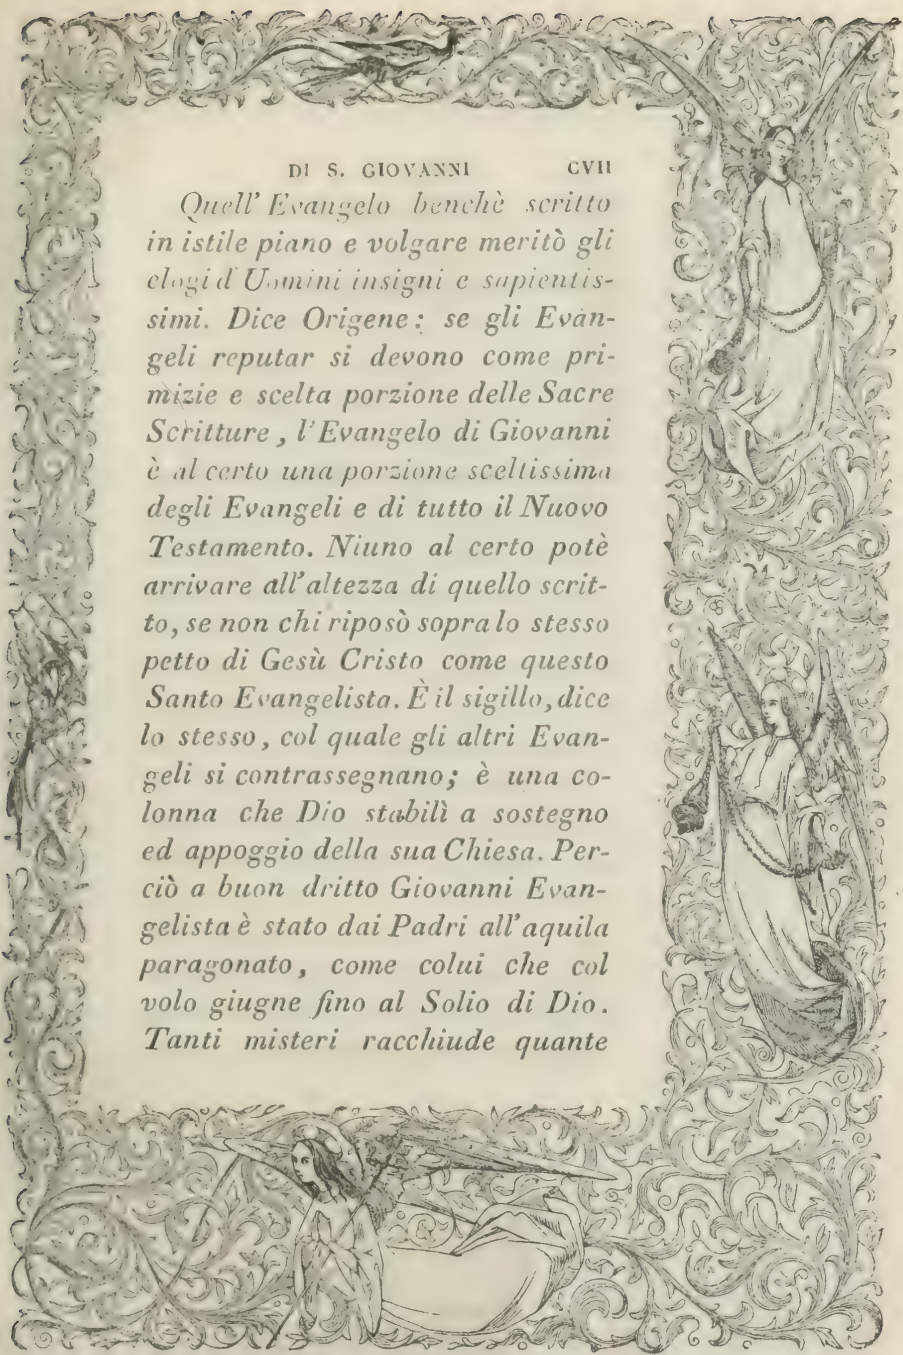 DI S. GIOVANNI CVII
Quell' Evangelo benchè scritto
in istile piano e volgare meritò gli
elogi d'Uomini insigni e sapientis-
simi. Dice Origene: se gli Evan-
geli reputar si devono come pri-
mizie e scelta porzione delle Sacre
Scritture, l'Evangelo di Giovanni
è al certo una porzione sceltissima
degli Evangeli e di tutto il Nuovo
Testamento. Niuno al certo potè
arrivare all'altezza di quello scrit-
to, se non chi riposò sopra lo stesso
petto di Gesù Cristo come questo
Santo Evangelista. È il sigillo, dice
lo stesso, col quale gli altri Evan-
geli si contrassegnano; è una co-
lonna che Dio stabilì a sostegno
ed appoggio della sua Chiesa. Per-
ciò a buon dritto Giovanni Evan-
gelista è stato dai Padri all'aquila
paragonato, come colui che col
volo giugne fino al Solio di Dio.
Tanti misteri racchiude quante